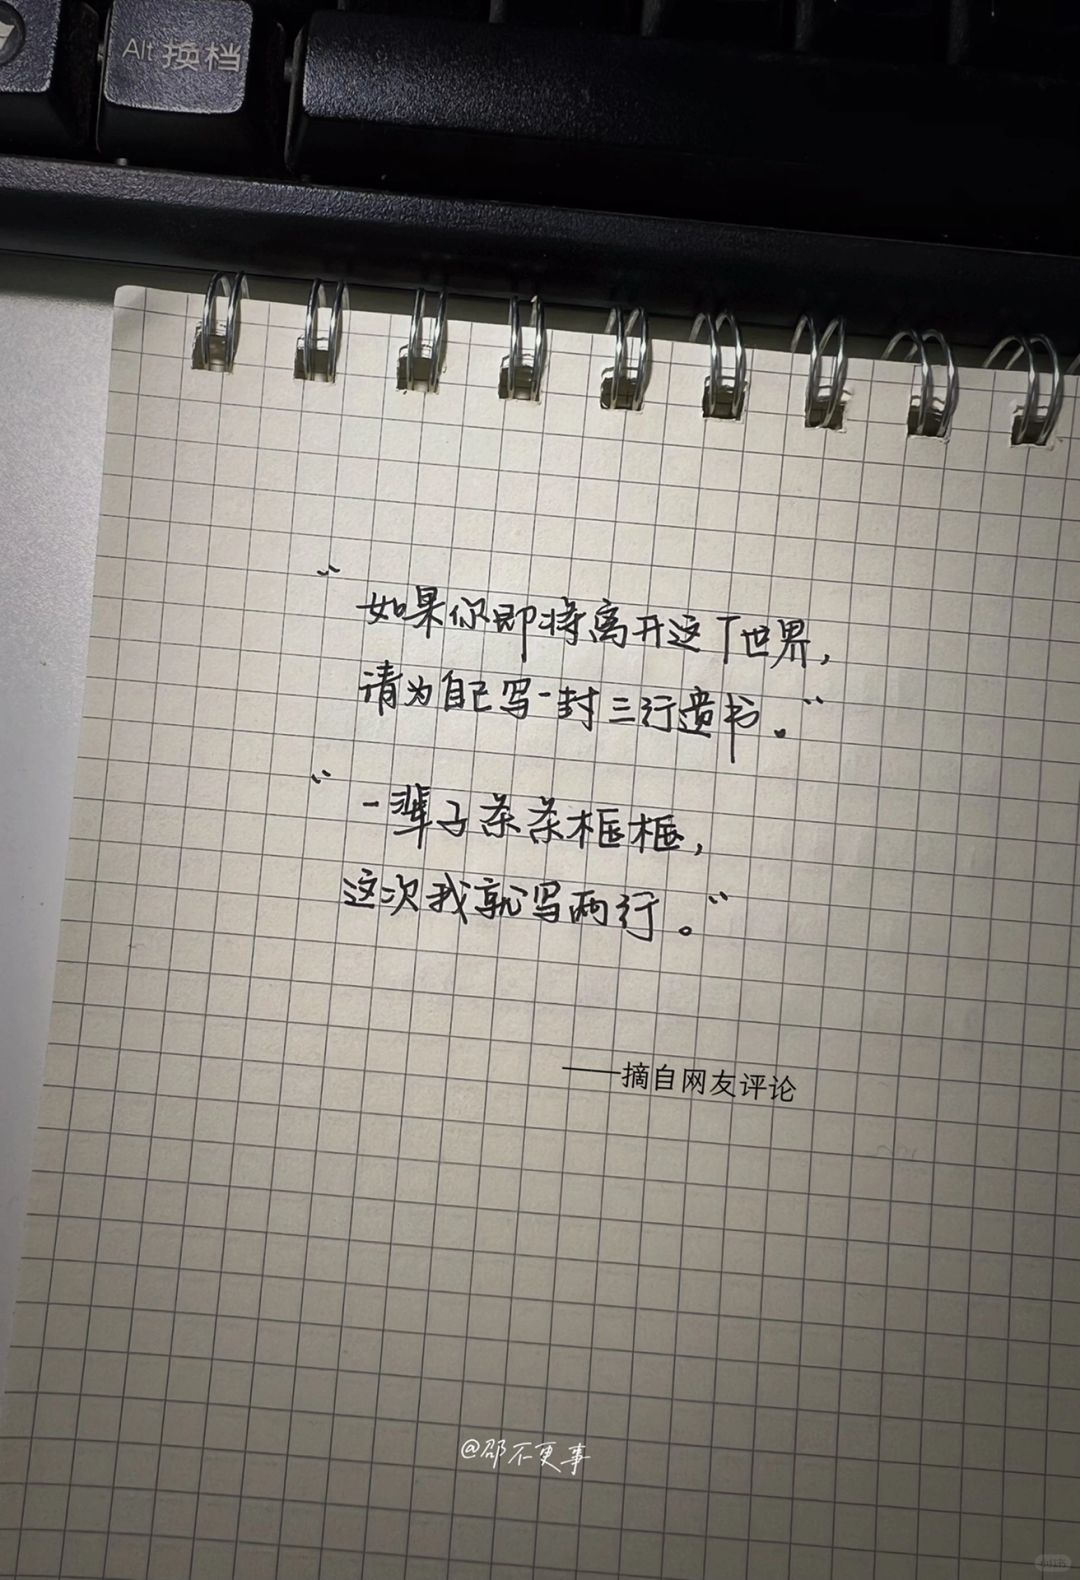 Alt 换档
“如果你即将离开这个世界，
请为自己写一封三行遗书。”
“一辈子条条框框，
这次我就写两行。”
——摘自网友评论
@邵不更事
小红书